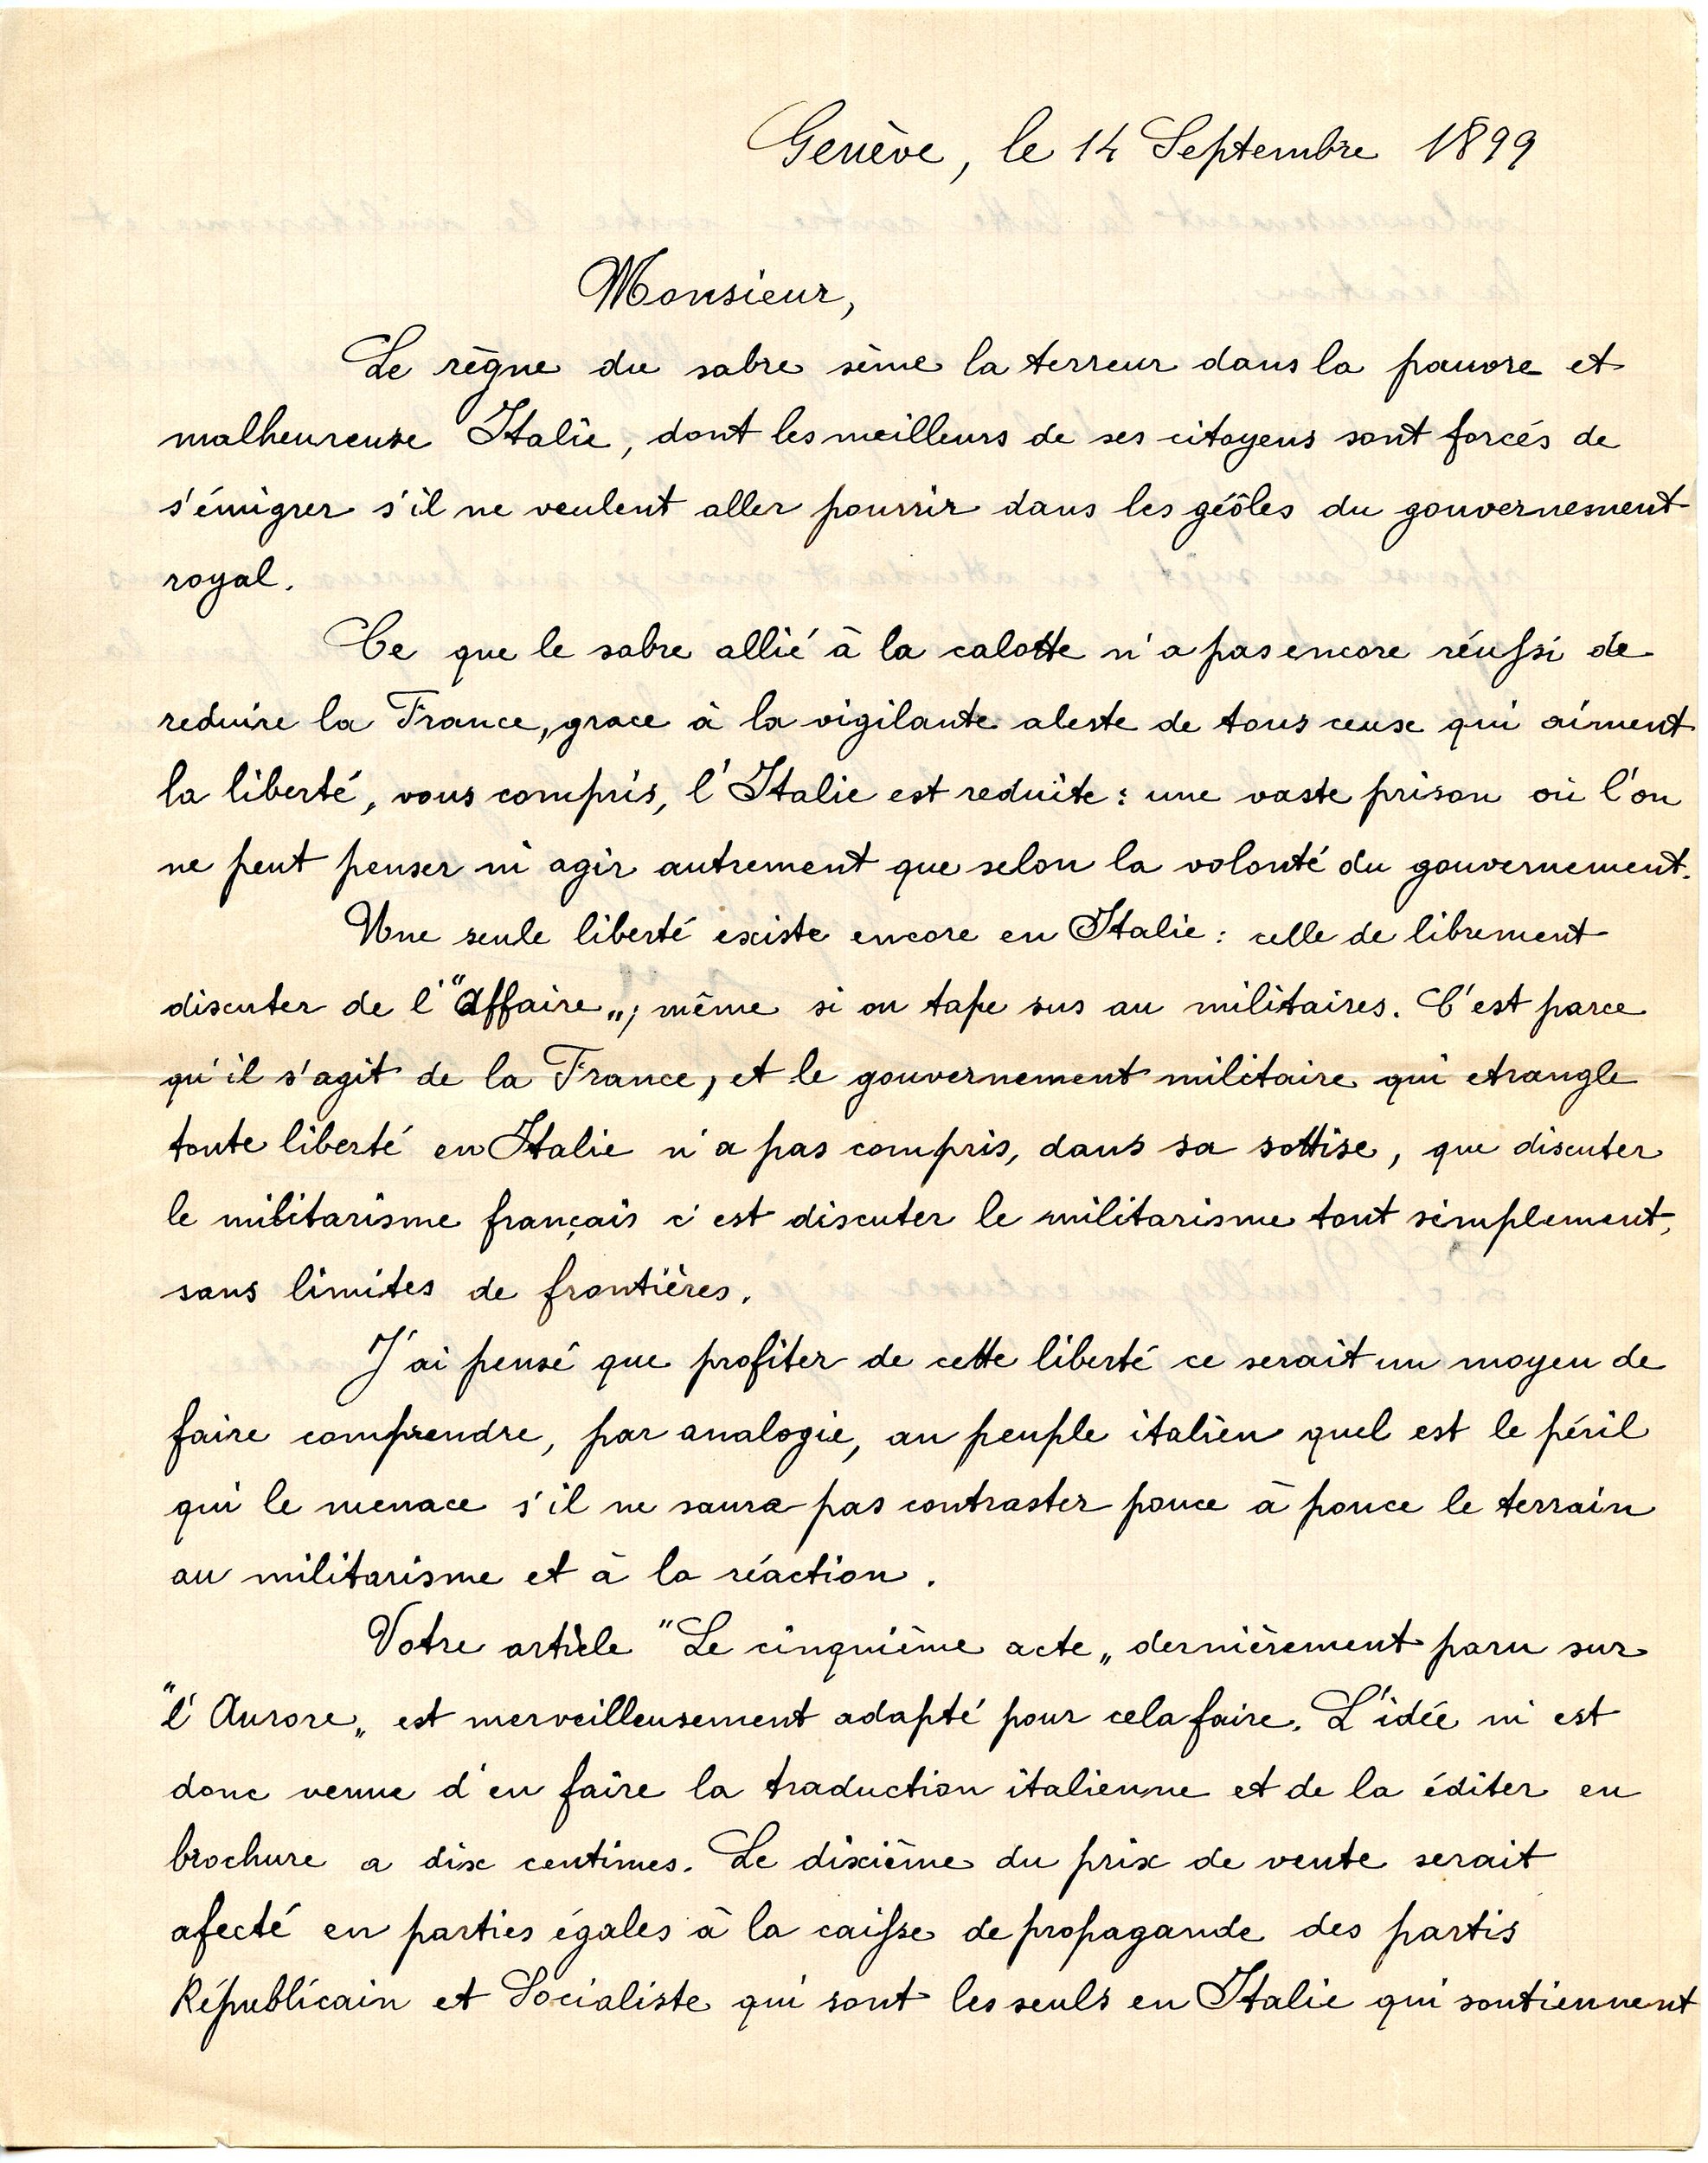 Genève, le 14 Septembre 1899
Monsieur,
Le règne du sabre sème la terreur dans la pauvre et
malheureuse Italie, dont les meilleurs de ses citoyens sont forcés de
s'émigrer s'il ne veulent aller pourrir dans les géôles du gouvernement
royal.
Ce que le sabre allié à la calotte n'a pas encore réussi de
reduire la France, grace à la vigilante aleste de tous ceux qui aiment
la liberté, vous compris, l'Italie est reduite: une vaste prison où l'on
ne peut penser ni agir autrement que selon la volonté du gouvernement.
Une seule liberté existe encore en Italie: celle de librement
discuter de l'"Affaire„; même si on tape sus au militaires. C'est parce
qu'il s'agit de la France, et le gouvernement militaire qui etrangle
toute liberté en Italie n'a pas compris, dans sa sottise, que discuter
le militarisme français c'est discuter le militarisme tout simplement,
sans limites de frontières.
J'ai pensé que profiter de cette liberté ce serait un moyen de
faire comprendre, par analogie, au peuple italien quel est le péril
qui le menace s'il ne saura pas contraster pouce à pouce le terrain
au militarisme et à la réaction.
Votre article "Le cinquième acte„ dernièrement paru sur
"l'Aurore„ est merveilleusement adapté pour cela faire. L'idée m'est
donc venue d'en faire la traduction italienne et de la éditer en
brochure a dix centimes. Le dixième du prix de vente serait
afecté en parties égales à la caisse de propagande des partis
Républicain et Socialiste qui sont les seuls en Italie qui soutiennent